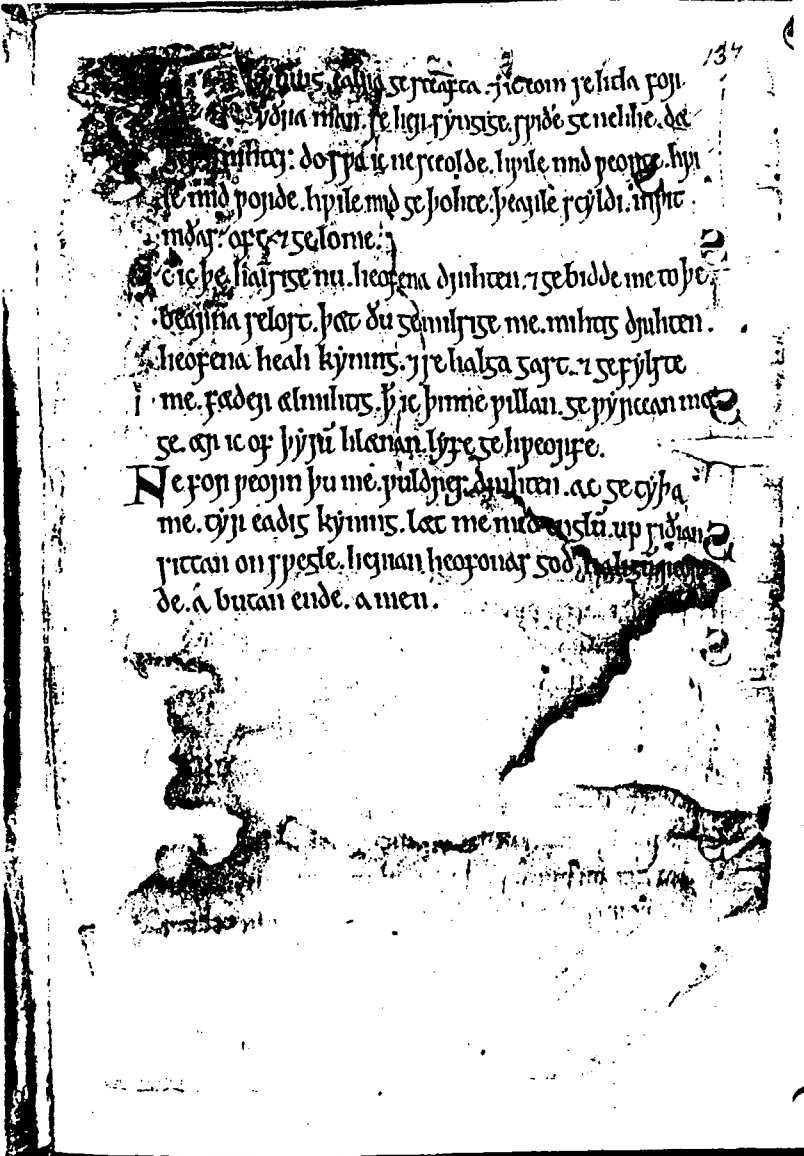 134
gesceafta. ⁊ ic eom se litla for
yðra man. se her syngige. swiðe genehhe. dæ
do swa ic ne sceolde. hwile mid weorce. hwi
le mid worde. hwile mid geþohte. þearle scyldi. inwit
niðas. oft ⁊ gelome.
Ac ic þe halsige nu. heofena drihten. ⁊ gebidde me to þe.
bearna selost. þæt ðu gemilsige me. mihtig drihten.
heofena heah kyning. ⁊ se halga gast. ⁊ gefylste
me. fæder ælmihtig. ꝥ ic þinne willan. gewyrcean mæ
ge. ær ic of þysū hlænan. lyfe gehweorfe.
Ne forweorn þu me. wuldres drihten. ac getyþa
me. tyr eadig kyning. læt me mid englū. up siðian
sittan on swegle. herian heofonas god. haligū reor
de. á butan ende. amen.